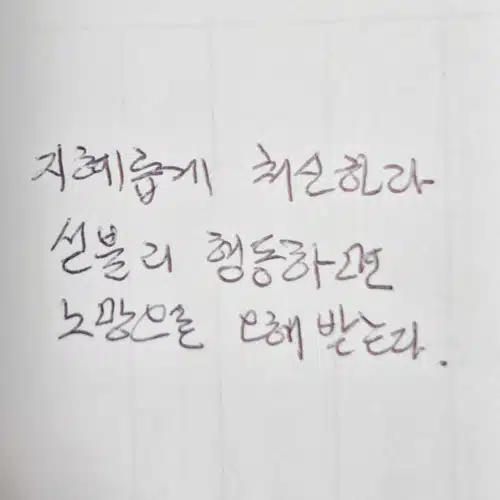 지혜롭게 처신한라
섣불리 행동하면
노망으로 오해 받는다.